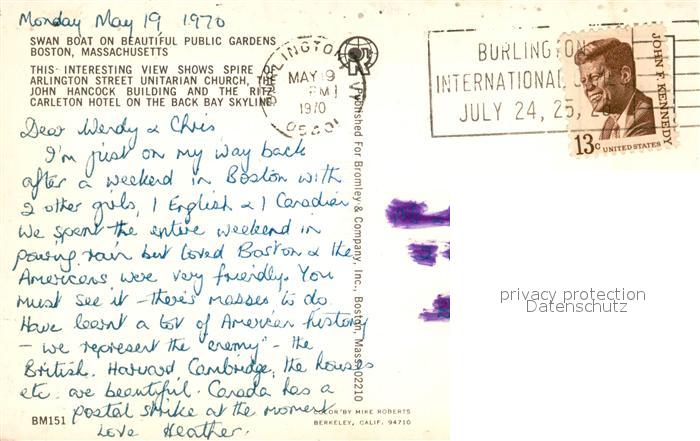 Monday May 19 1970
SWAN BOAT ON BEAUTIFUL PUBLIC GARDENS
BOSTON, MASSACHUSETTS
THIS INTERESTING VIEW SHOWS SPIRE OF
ARLINGTON STREET UNITARIAN CHURCH, THE
JOHN HANCOCK BUILDING AND THE RITZ
CARLETON HOTEL ON THE BACK BAY SKYLINE.
Dear Wendy & Chris
I'm just on my way back
after a weekend in Boston with
2 other girls, 1 English & 1 Canadian
We spent the entire weekend in
pouring rain but loved Boston & the
Americans were very friendly. You
must see it - there's masses to do.
Have learnt a lot of American history
- we represent the "enemy" - the
British. Harvard Cambridge, the houses
etc. are beautiful. Canada has a
postal strike at the moment
Love Heather.
BM151
COLOR BY MIKE ROBERTS
BERKELEY, CALIF. 94710
Published For Bromley & Company, Inc., Boston, Mass. 02210
BURLINGTON
MAY 19
PM
1970
05401
BURLINGTON
INTERNATIONAL
JULY 24, 25,
JOHN F. KENNEDY
13c UNITED STATES
privacy protection
Datenschutz